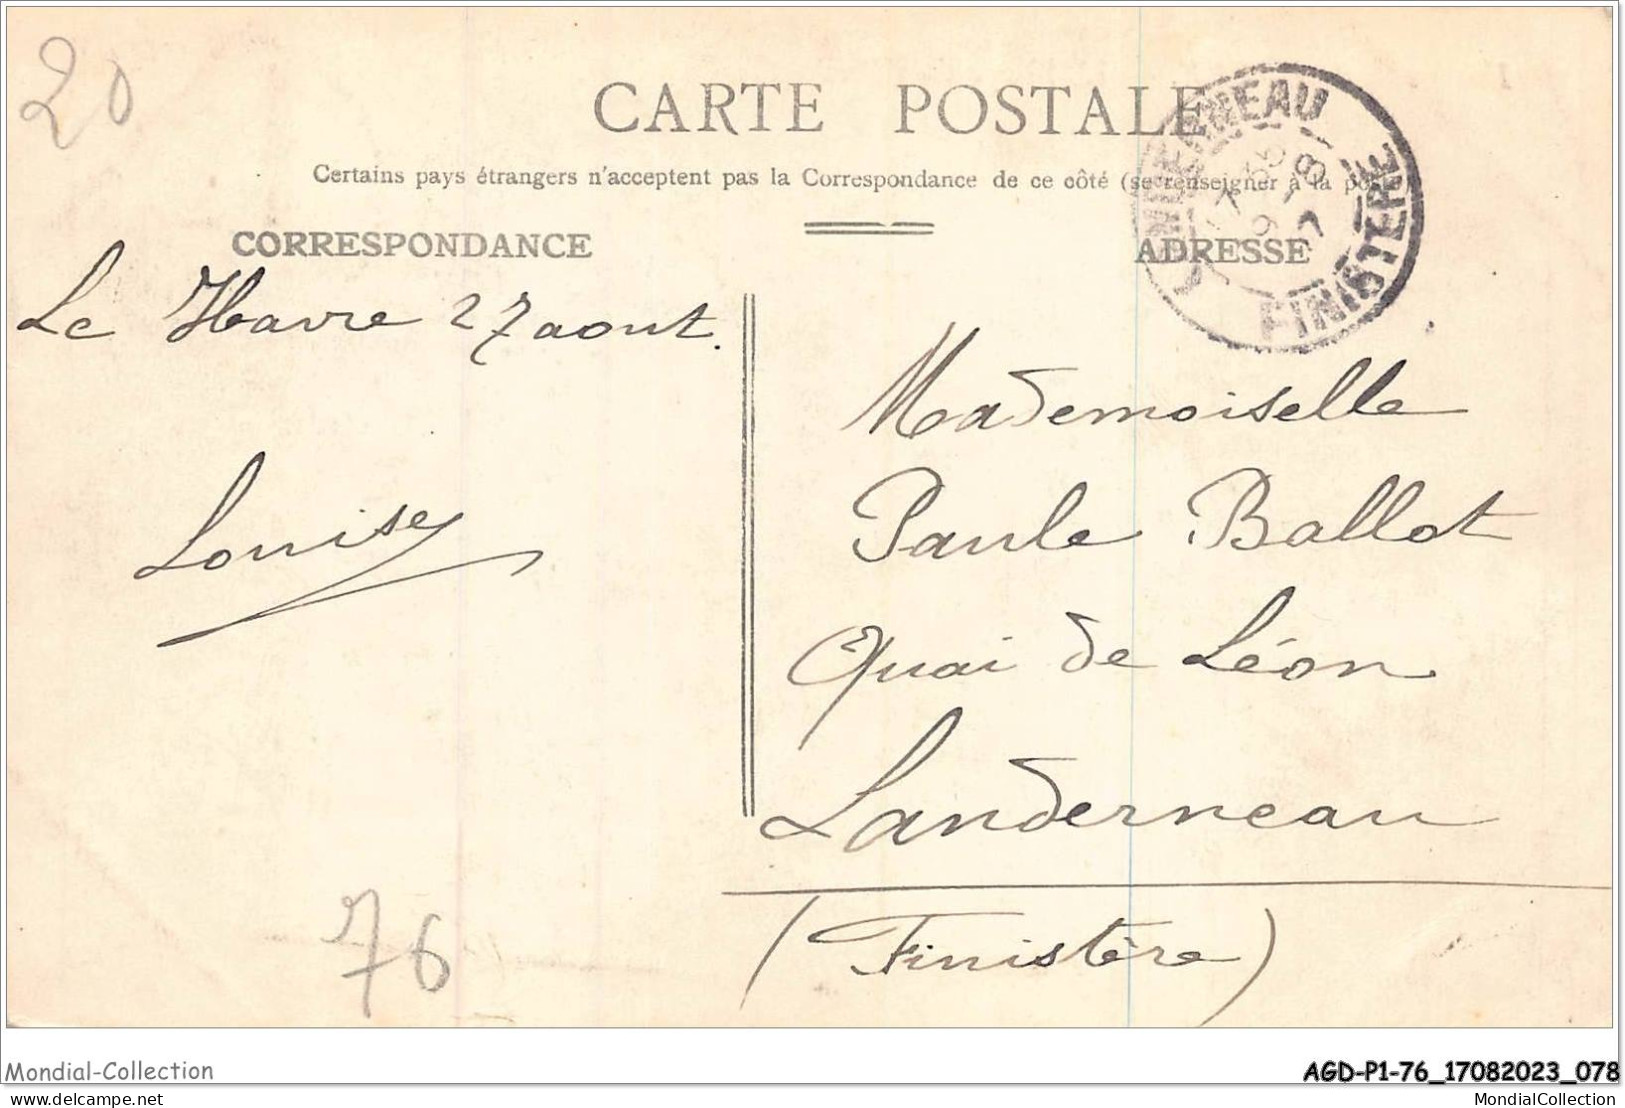 20
CARTE POSTALE
Certains pays étrangers n'acceptent pas la Correspondance de ce côté (se renseigner à la poste
LANDERNEAU
FINISTÈRE
CORRESPONDANCE
ADRESSE
Le Havre 27 aout.
Louise
Mademoiselle
Paule Ballot
Quai de Léon
Landerneau
(Finistère)
76
Mondial-Collection
AGD-P1-76_17082023_078
delcampe.net
MondialCollection